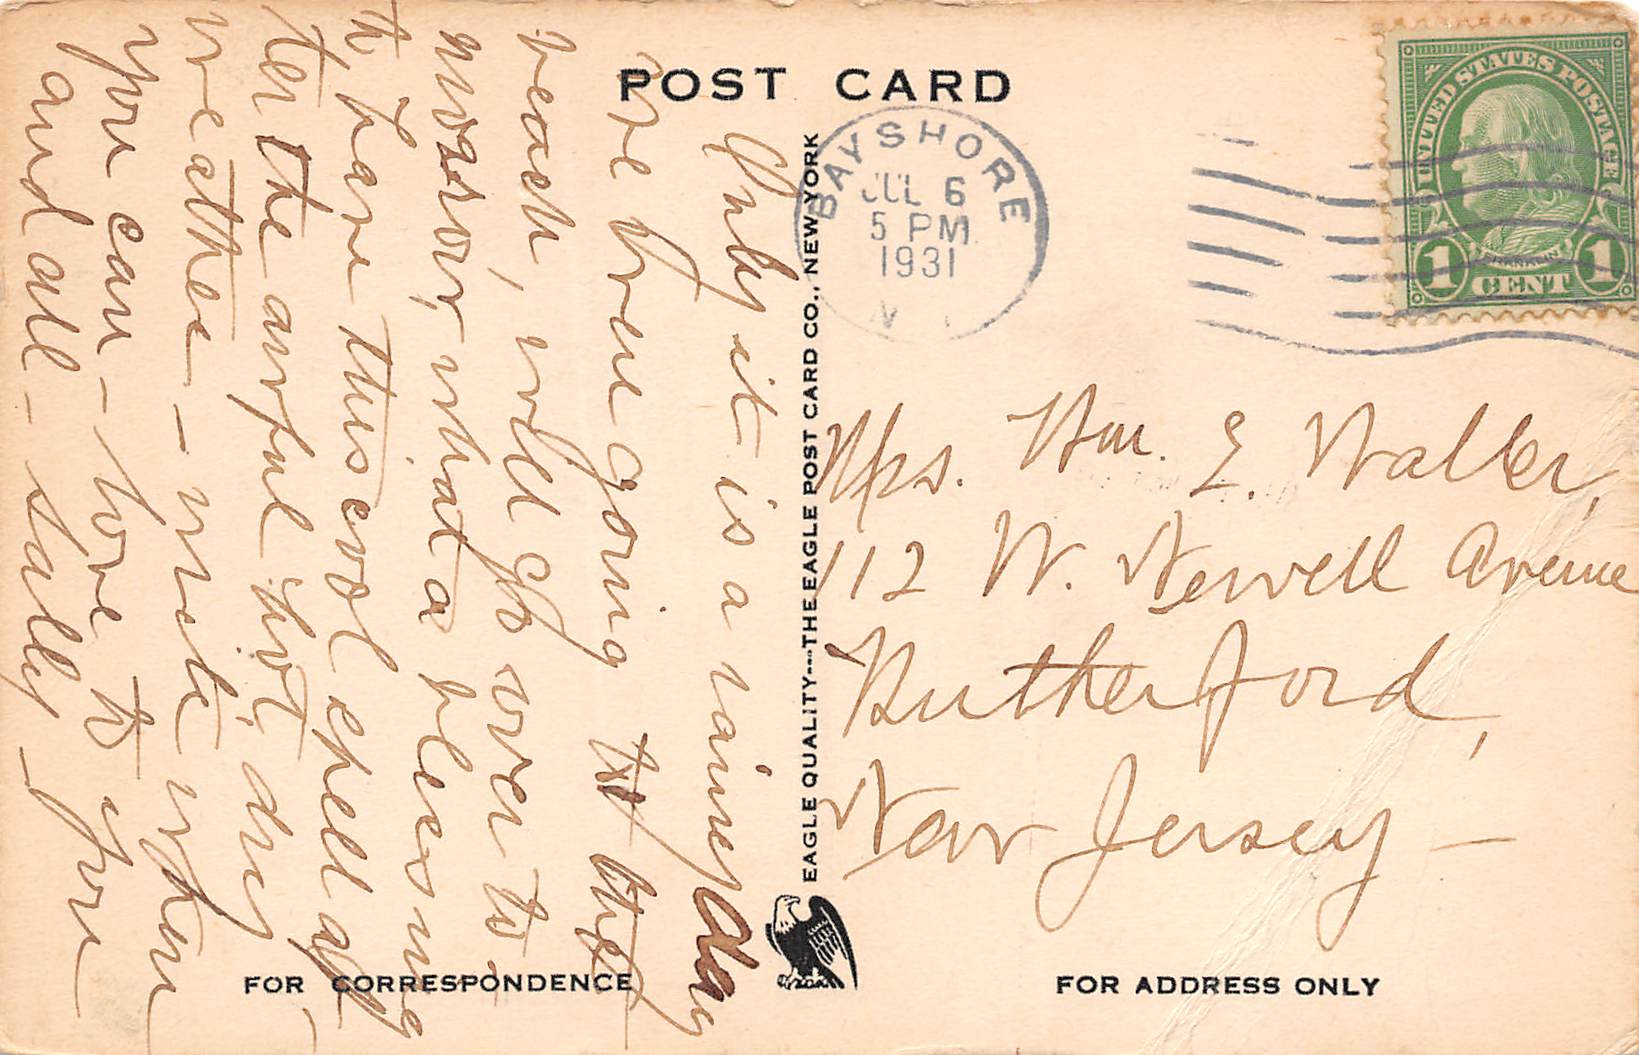 POST CARD
BAYSHORE
JUL 6
5 PM
1931
N
UNITED STATES POSTAGE
FRANKLIN
1 CENT 1
it is a rainy day
we were going to the
beach, will go over to-
morrow, what a blessing
to have this cool spell af-
ter the awful hot, dry
weather - write when
you can - love to you
and all - Sally -
EAGLE QUALITY---THE EAGLE POST CARD CO., NEW YORK
Mrs. Wm. E. Waller,
112 W. Newell Avenue
Rutherford,
New Jersey -
FOR CORRESPONDENCE
FOR ADDRESS ONLY